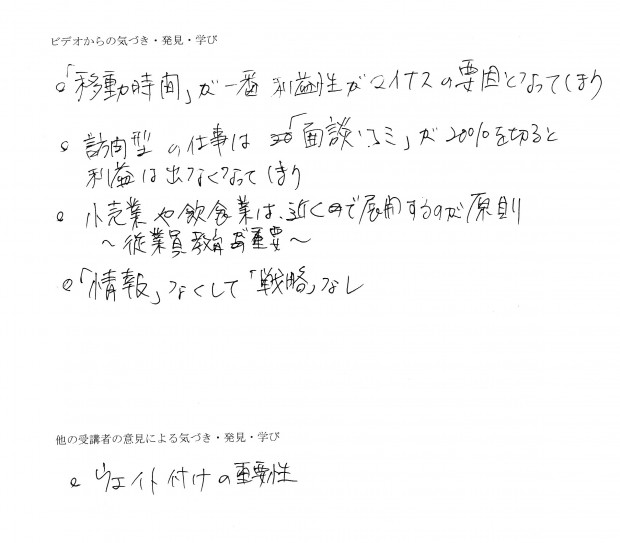 ビデオからの気づき・発見・学び
。「移動時間」が一番 利益性がマイナスの要因となってしまう
。訪問型 の仕事は 「面談 」が 20%を切ると
利益は出なくなってしまう
。小売業や飲食業は、近くので展開するのが原則
～従業員教育が重要～
。「情報」なくして「戦略」なし
他の受講者の意見による気づき・発見・学び
。ウェイト付けの重要性